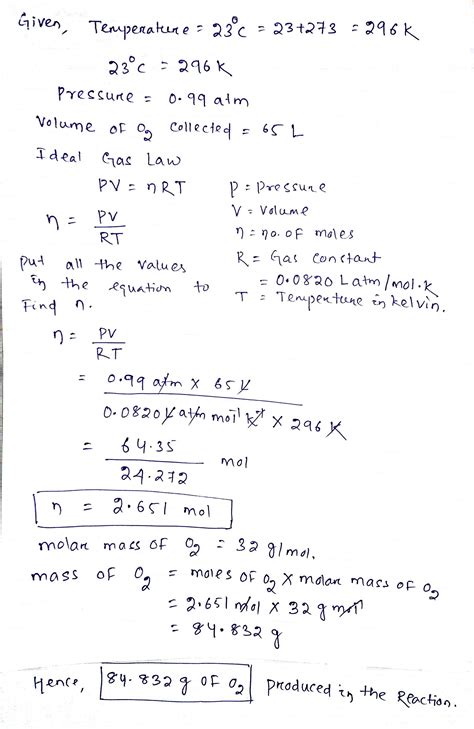 Given, Temperature = 23°C = 23+273 = 296K
23°C = 296K
Pressure = 0.99 atm
Volume of O2 collected = 65 L
Ideal Gas Law
PV = nRT P = Pressure
n = PV/RT V = Volume
n = no. of moles
Put all the values R = Gas constant
in the equation to = 0.0820 L atm/mol.K
Find n. T = Temperture in kelvin.
n = PV/RT
= 0.99 atm X 65 L / 0.0820 L atm mol⁻¹ K⁻¹ X 296 K
= 64.35/24.272 mol
n = 2.651 mol
molar mass of O2 = 32 g/mol.
mass of O2 = moles of O2 X molar mass of O2
= 2.651 mol X 32 g mol⁻¹
= 84.832 g
Hence, 84.832 g of O2 produced in the Reaction.